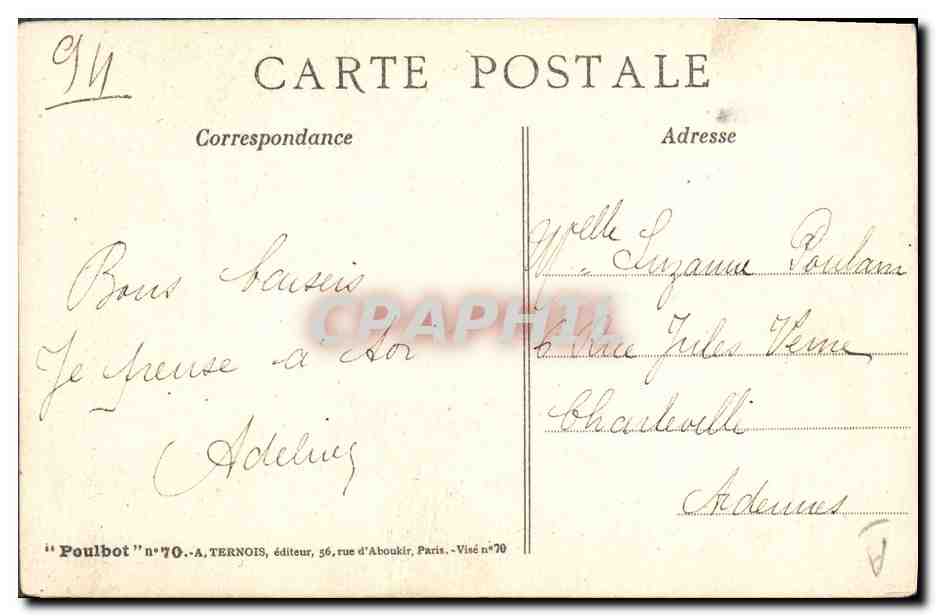 94
CARTE POSTALE
Correspondance
Adresse
Bons baisers
Je pense a toi
Adeline
Melle Suzanne Poulain
6 Rue Jules Verne
Charleville
Ardennes
CPAPHIL
"Poulbot" n° 70.-A. TERNOIS, éditeur, 56, rue d'Aboukir, Paris. -Visé n° 70